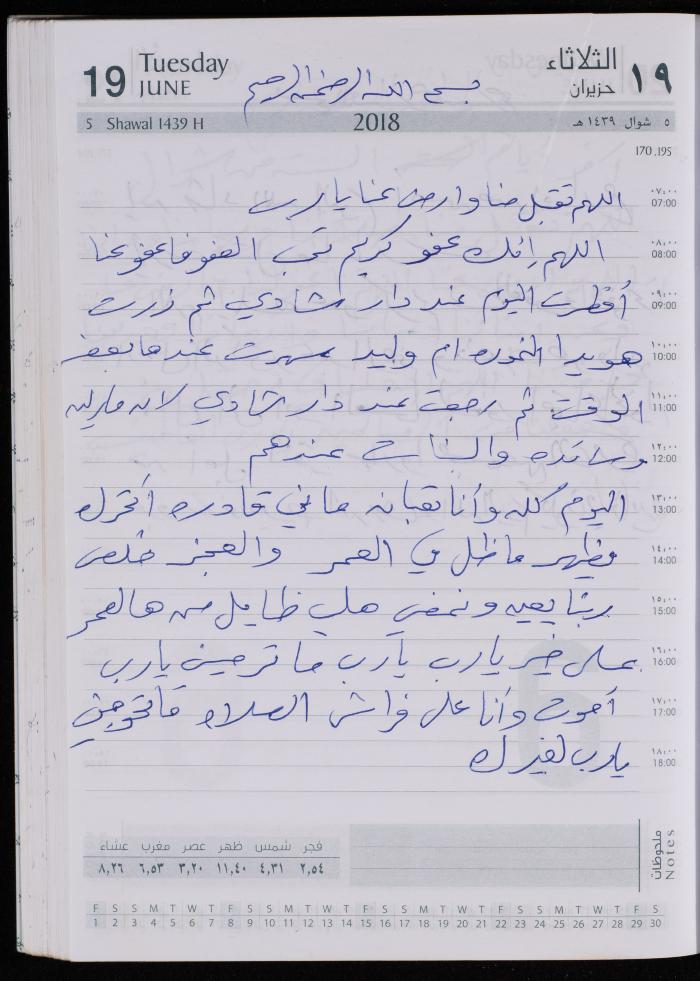 19 Tuesday JUNE
بسم الله الرحمن الرحيم
الثلاثاء ١٩ حزيران
5 Shawal 1439 H 2018 ٥ شوال ١٤٣٩ هـ
170.195
٠٧:٠٠ 07:00 اللهم تقبل منا وارض عنا يا رب
٠٨:٠٠ 08:00 اللهم إنك عفو كريم تحب العفو فاعفو عنا
٠٩:٠٠ 09:00 أفطرت اليوم عند دار شادي ثم زرت
١٠:٠٠ 10:00 هويدا ام وليد سهرت عندها بعض
١١:٠٠ 11:00 الوقت ثم رجعت عند دار شادي لانه
١٢:٠٠ 12:00 والبنات عندهم
١٣:٠٠ 13:00 اليوم كله وأنا تعبانه ماني قادره أتحرك
١٤:٠٠ 14:00 مظهر ماظل في العمر والعجز خلص
١٥:٠٠ 15:00 ربنا يعين ونمضي هلي ظايل من هالعمر
١٦:٠٠ 16:00 على خير يارب يارب ما ترميني يارب
١٧:٠٠ 17:00 أموت وأنا على فراش الصلاه ماتحوجني
١٨:٠٠ 18:00 يارب لغيرك
ملحوظات Notes
فجر شمس ظهر عصر مغرب عشاء
٢,٥٤ ٤,٣١ ١١,٤٠ ٣,٢٠ ٦,٥٣ ٨,٢٦
F S S M T W T F S S M T W T F S S M T W T F S S M T W T F S
1 2 3 4 5 6 7 8 9 10 11 12 13 14 15 16 17 18 19 20 21 22 23 24 25 26 27 28 29 30